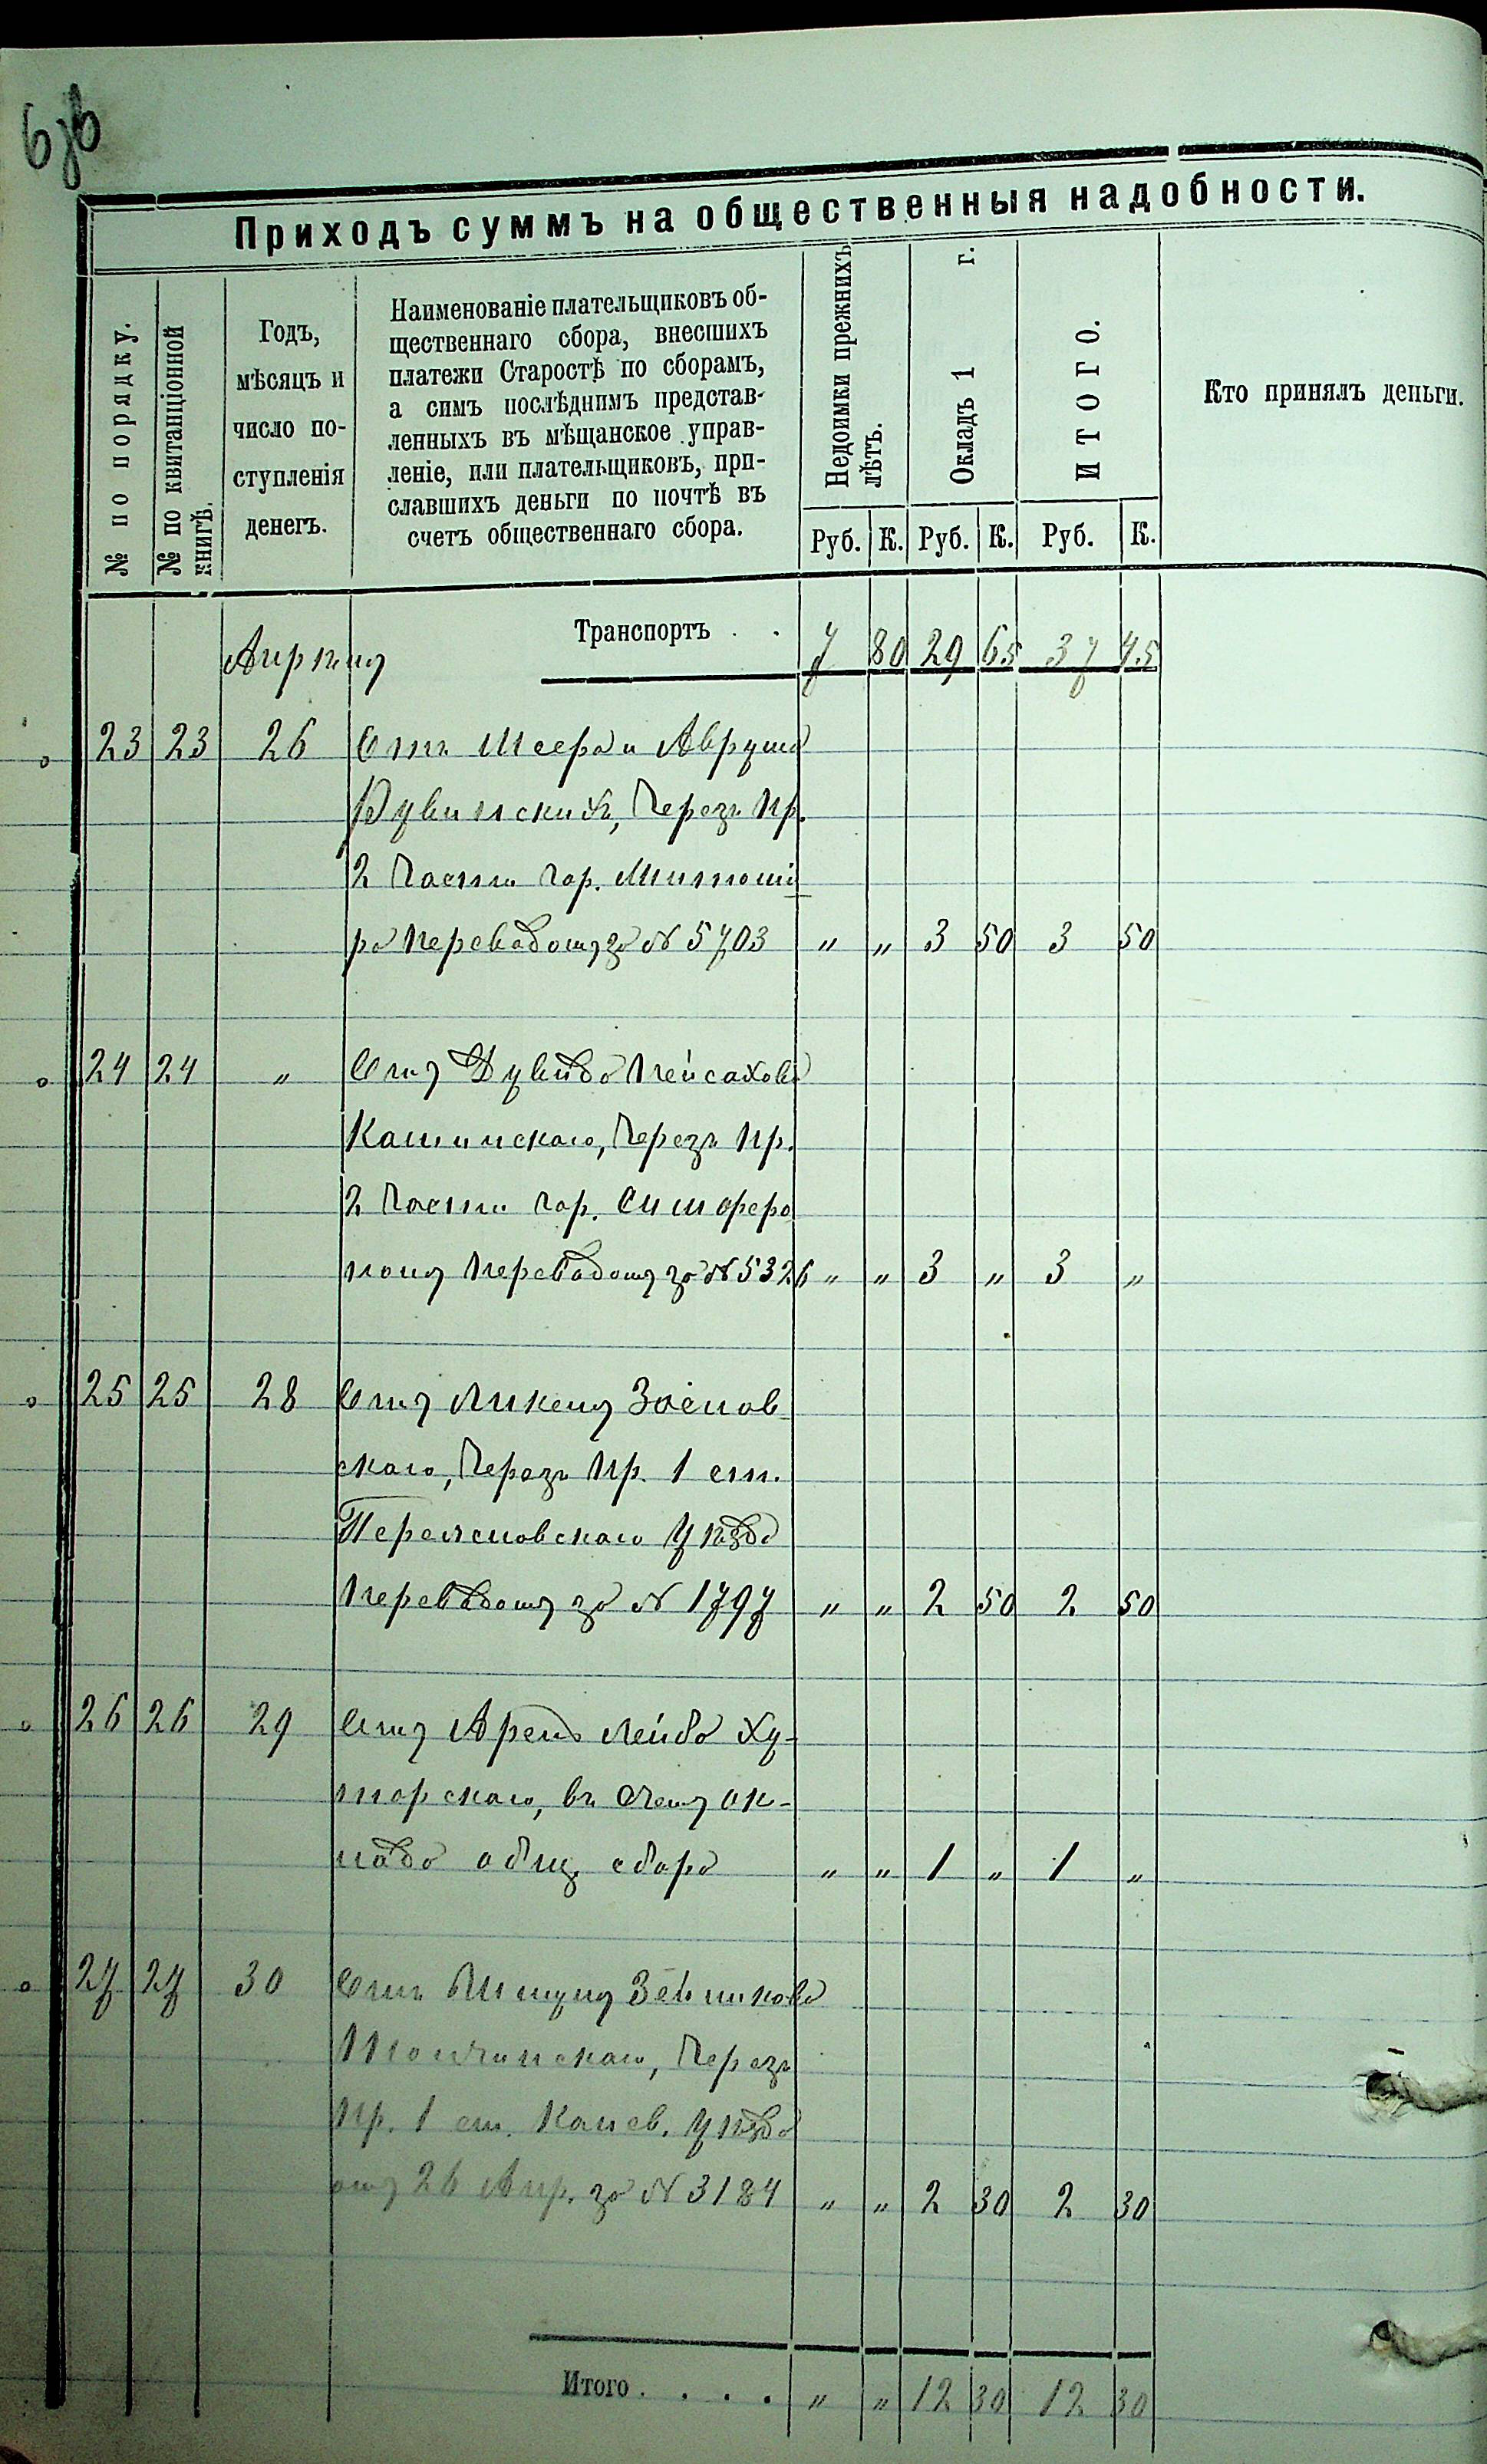 6 об
Приходъ суммъ на общественныя надобности.
№ по порядку.
№ по квитанціонной книгѣ.
Годъ,
мѣсяцъ и
число по-
ступленія
денегъ.
Наименованіе плательщиковъ об-
щественнаго сбора, внесшихъ
платежи Старостѣ по сборамъ,
а симъ послѣднимъ представ-
ленныхъ въ мѣщанское управ-
леніе, или плательщиковъ, при-
славшихъ деньги по почтѣ въ
счетъ общественнаго сбора.
Недоимки прежнихъ
лѣтъ.
Окладъ 1 г.
ИТОГО.
Кто принялъ деньги.
Руб. К. Руб. К. Руб. К.
Апрѣля Транспортъ . . 7 80 29 65 37 45
23 23 26 Отъ Шеера и Авруша
Дувинскихъ, Черезъ Пр.
2 Части Гор. Житомі
ра переводомъ за № 5703 " " 3 50 3 50
24 24 " Отъ Дувида Пейсахова
Кашинскаго, Черезъ Пр.
2 Части Гор. Симферо
поля переводомъ за № 5326 " " 3 " 3 "
25 25 28 Отъ
скаго, Черезъ Пр. 1 ст.
Переяславскаго Уѣзда
переводомъ за № 1797 " " 2 50 2 50
26 26 29 Отъ Арень Лейба Ху-
торскаго, въ Счетъ ок-
лада общ. сбора " " 1 " 1 "
27 27 30 Отъ
Черезъ
Пр. 1 ст. Канев. Уѣзда
отъ 26 Апр. за № 3184 " " 2 30 2 30
Итого . . . . " " 12 30 12 30